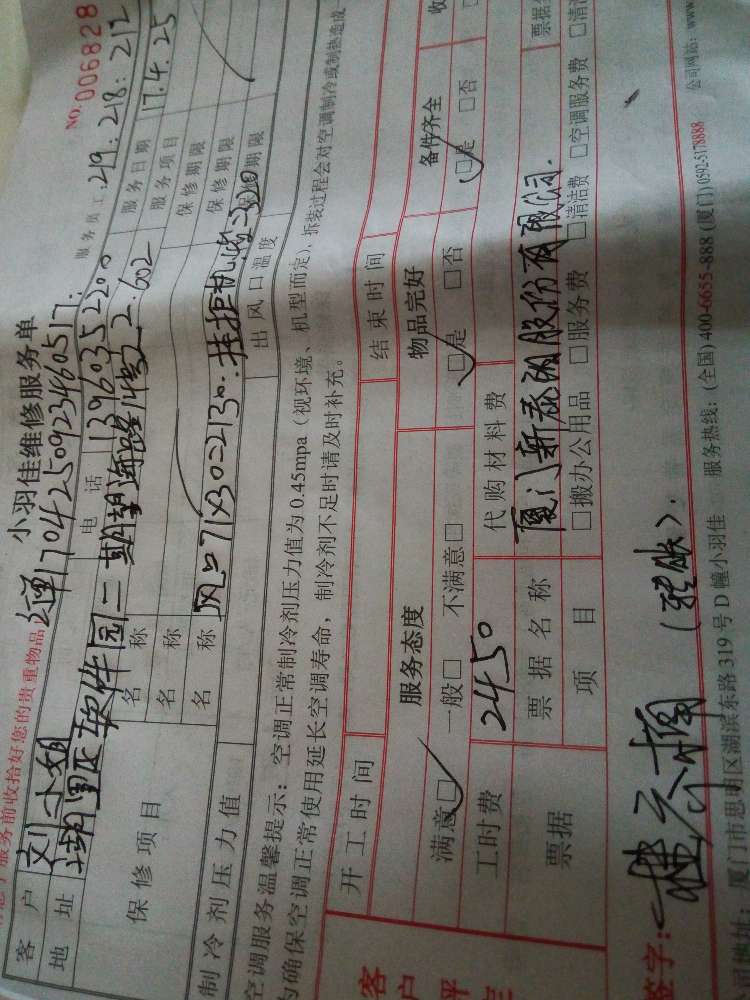 服务前收拾好您的贵重物品
小羽佳维修服务单
NO. 006828
订单170425092346051 7.
服务员工 219. 218. 212
客户 刘小姐 电话 13960352200 服务日期 17.4.25
地址 湖里区软件园二期望海路14号之2.602 服务项目
保修项目 名称 保修期限
名称 保修期限
名称 风口71×30=2130. 挂柜机洗=320 保修期限
制冷剂压力值 出风口温度
空调服务温馨提示：空调正常制冷剂压力值为0.45mpa（视环境、机型而定），拆装过程会对空调制冷或制热造成
为确保空调正常使用延长空调寿命，制冷剂不足时请及时补充。
开工时间 结束时间
服务态度 物品完好 备件齐全 收
满意□ 一般□ 不满意□ □是 □否 □是 □否
工时费 2450 代购材料费
票据 票据名称 厦门新泰阳股份有限公司. 票据
项目 □搬办公用品 □服务费 □清洁费 □空调服务费 □清洁
客户评
签字：
公司地址：厦门市思明区湖滨东路319号D幢小羽佳 服务热线：(全国) 400-6655-888 (厦门) 0592-5178888 公司网站：www